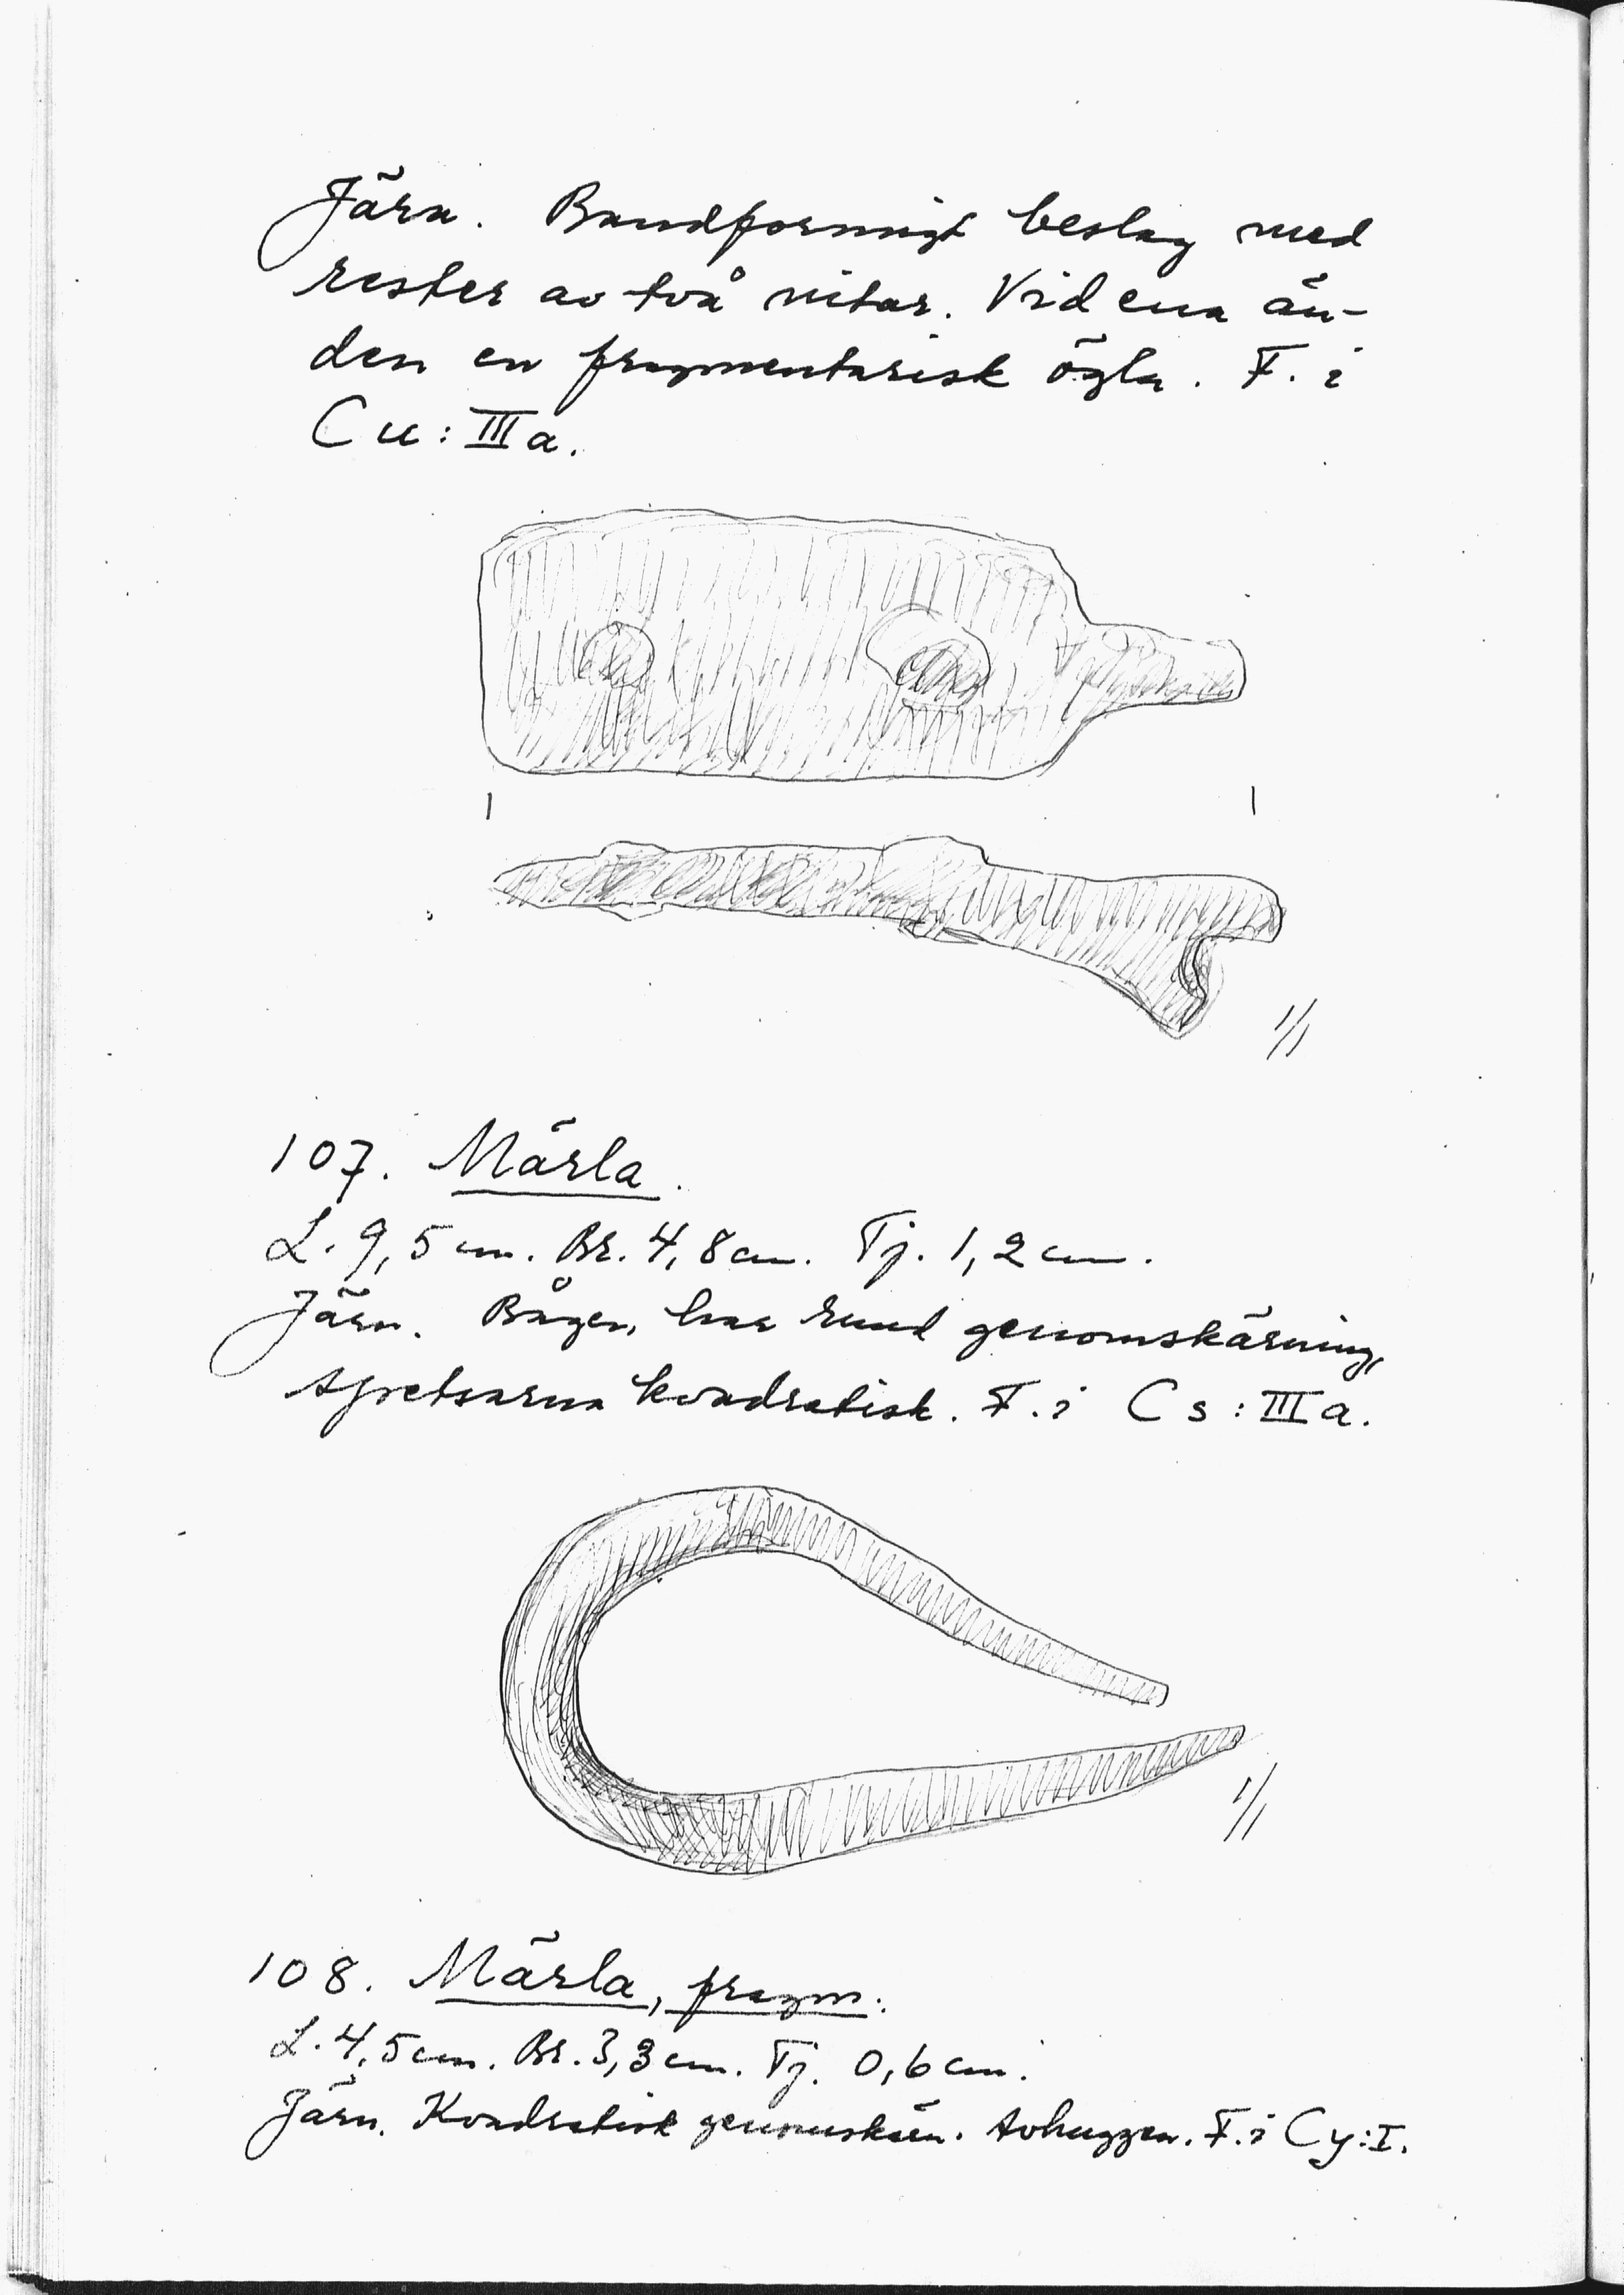 Järn. Bandformigt beslag med
rester av två nitar. Vid ena än-
den en fragmentarisk ögla. F. i
Cu: III a.
1/1
107. Märla.
L. 9,5 cm. Br. 4,8 cm. Tj. 1,2 cm.
Järn. Bågen har rund genomskärning,
spetsarna kvadratisk. F. i Cs: III a.
1/1
108. Märla, fragm.
L. 4,5 cm. Br. 3,3 cm. Tj. 0,6 cm.
Järn. Kvadratisk genomskärn. Avhuggen. F. i Cy: I.